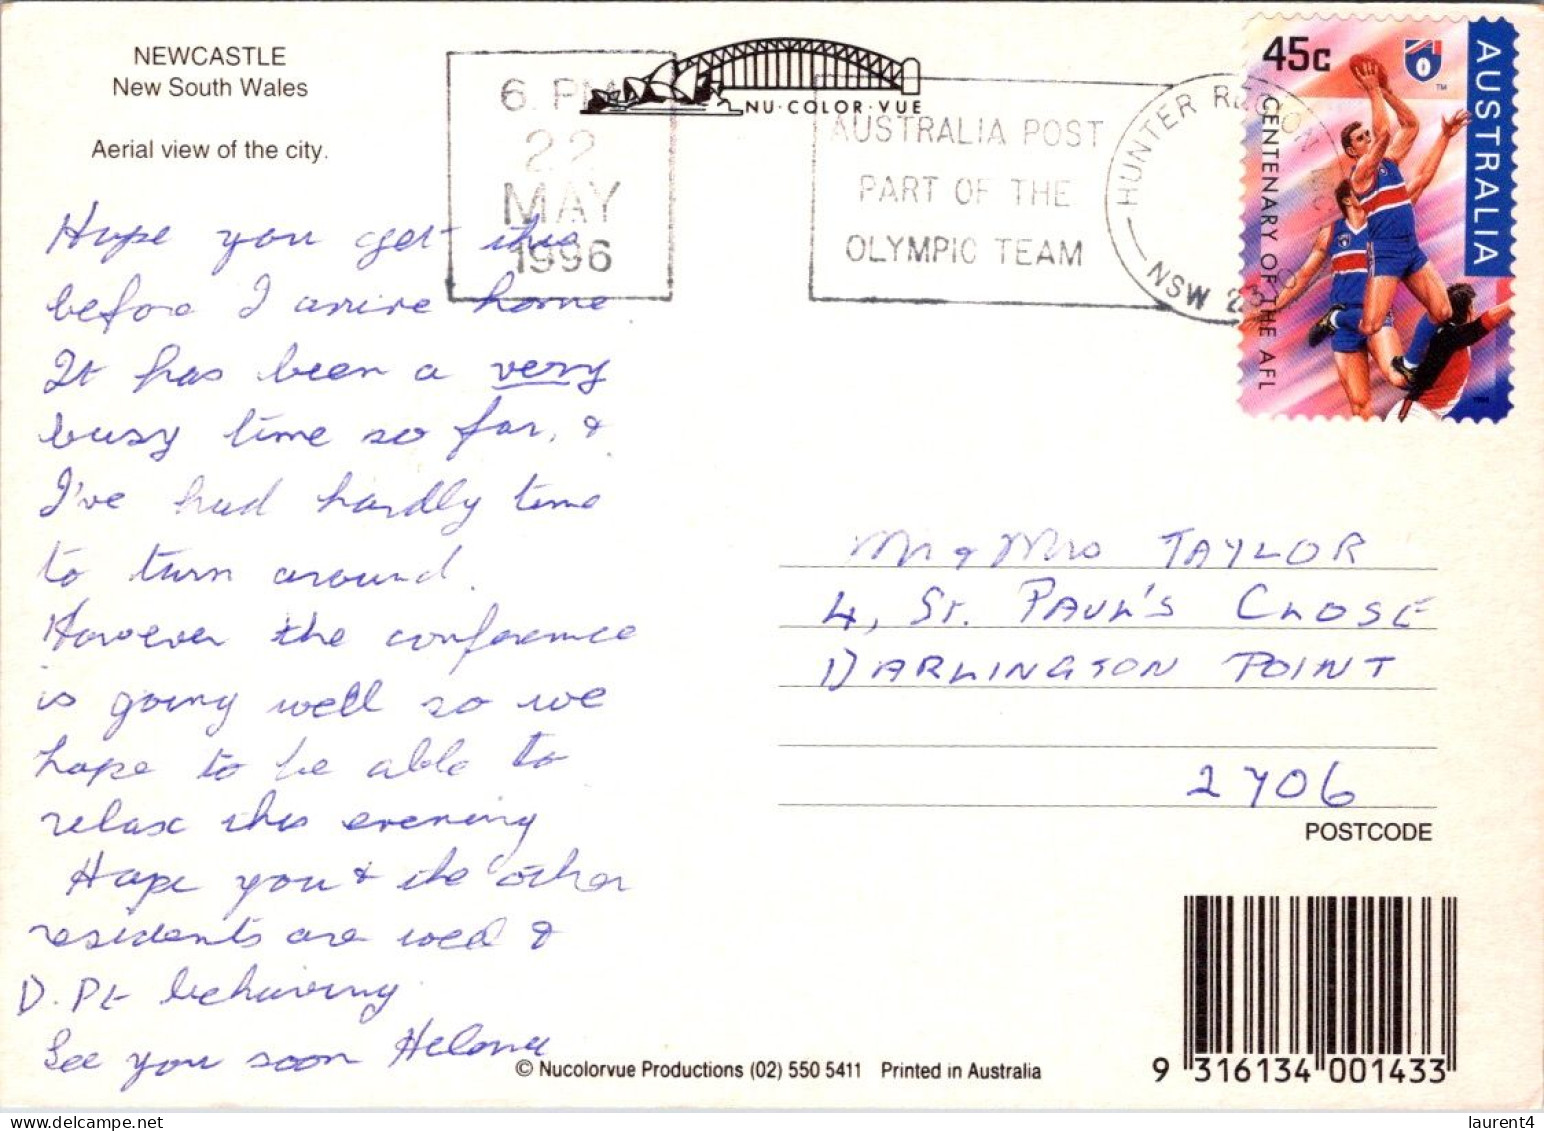 NEWCASTLE
New South Wales
Aerial view of the city.
6. PM
22
MAY
1996
NU·COLOR·VUE
AUSTRALIA POST
PART OF THE
OLYMPIC TEAM
HUNTER REGION MC
NSW
45c
AUSTRALIA
CENTENARY OF THE AFL
Hope you get this
before I arrive home
It has been a very
busy time so far, &
I've had hardly time
to turn around.
However the conference
is going well so we
hope to be able to
relax this evening
Hope you & the other
residents are well &
D. Pt behaving
See you soon Helena
Mr & Mrs TAYLOR
4, St. PAUL'S CLOSE
DARLINGTON POINT
2706
POSTCODE
© Nucolorvue Productions (02) 550 5411 Printed in Australia
9 316134 001433
laurent4